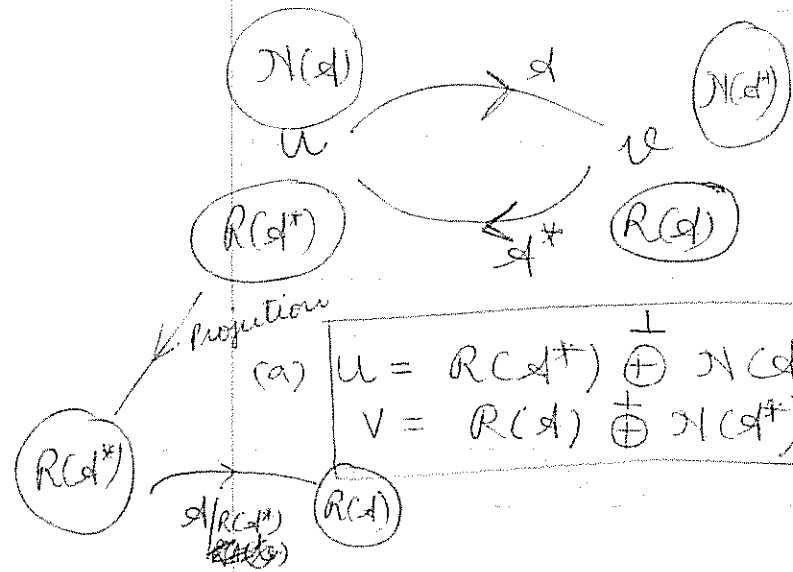 N(A) A N(A*)
U V
R(A*) A* R(A)
Projection
(a) U = R(A*) ⊕⊥ N(A
V = R(A) ⊕⊥ N(A*)
R(A*) A/R(A*) R(A)